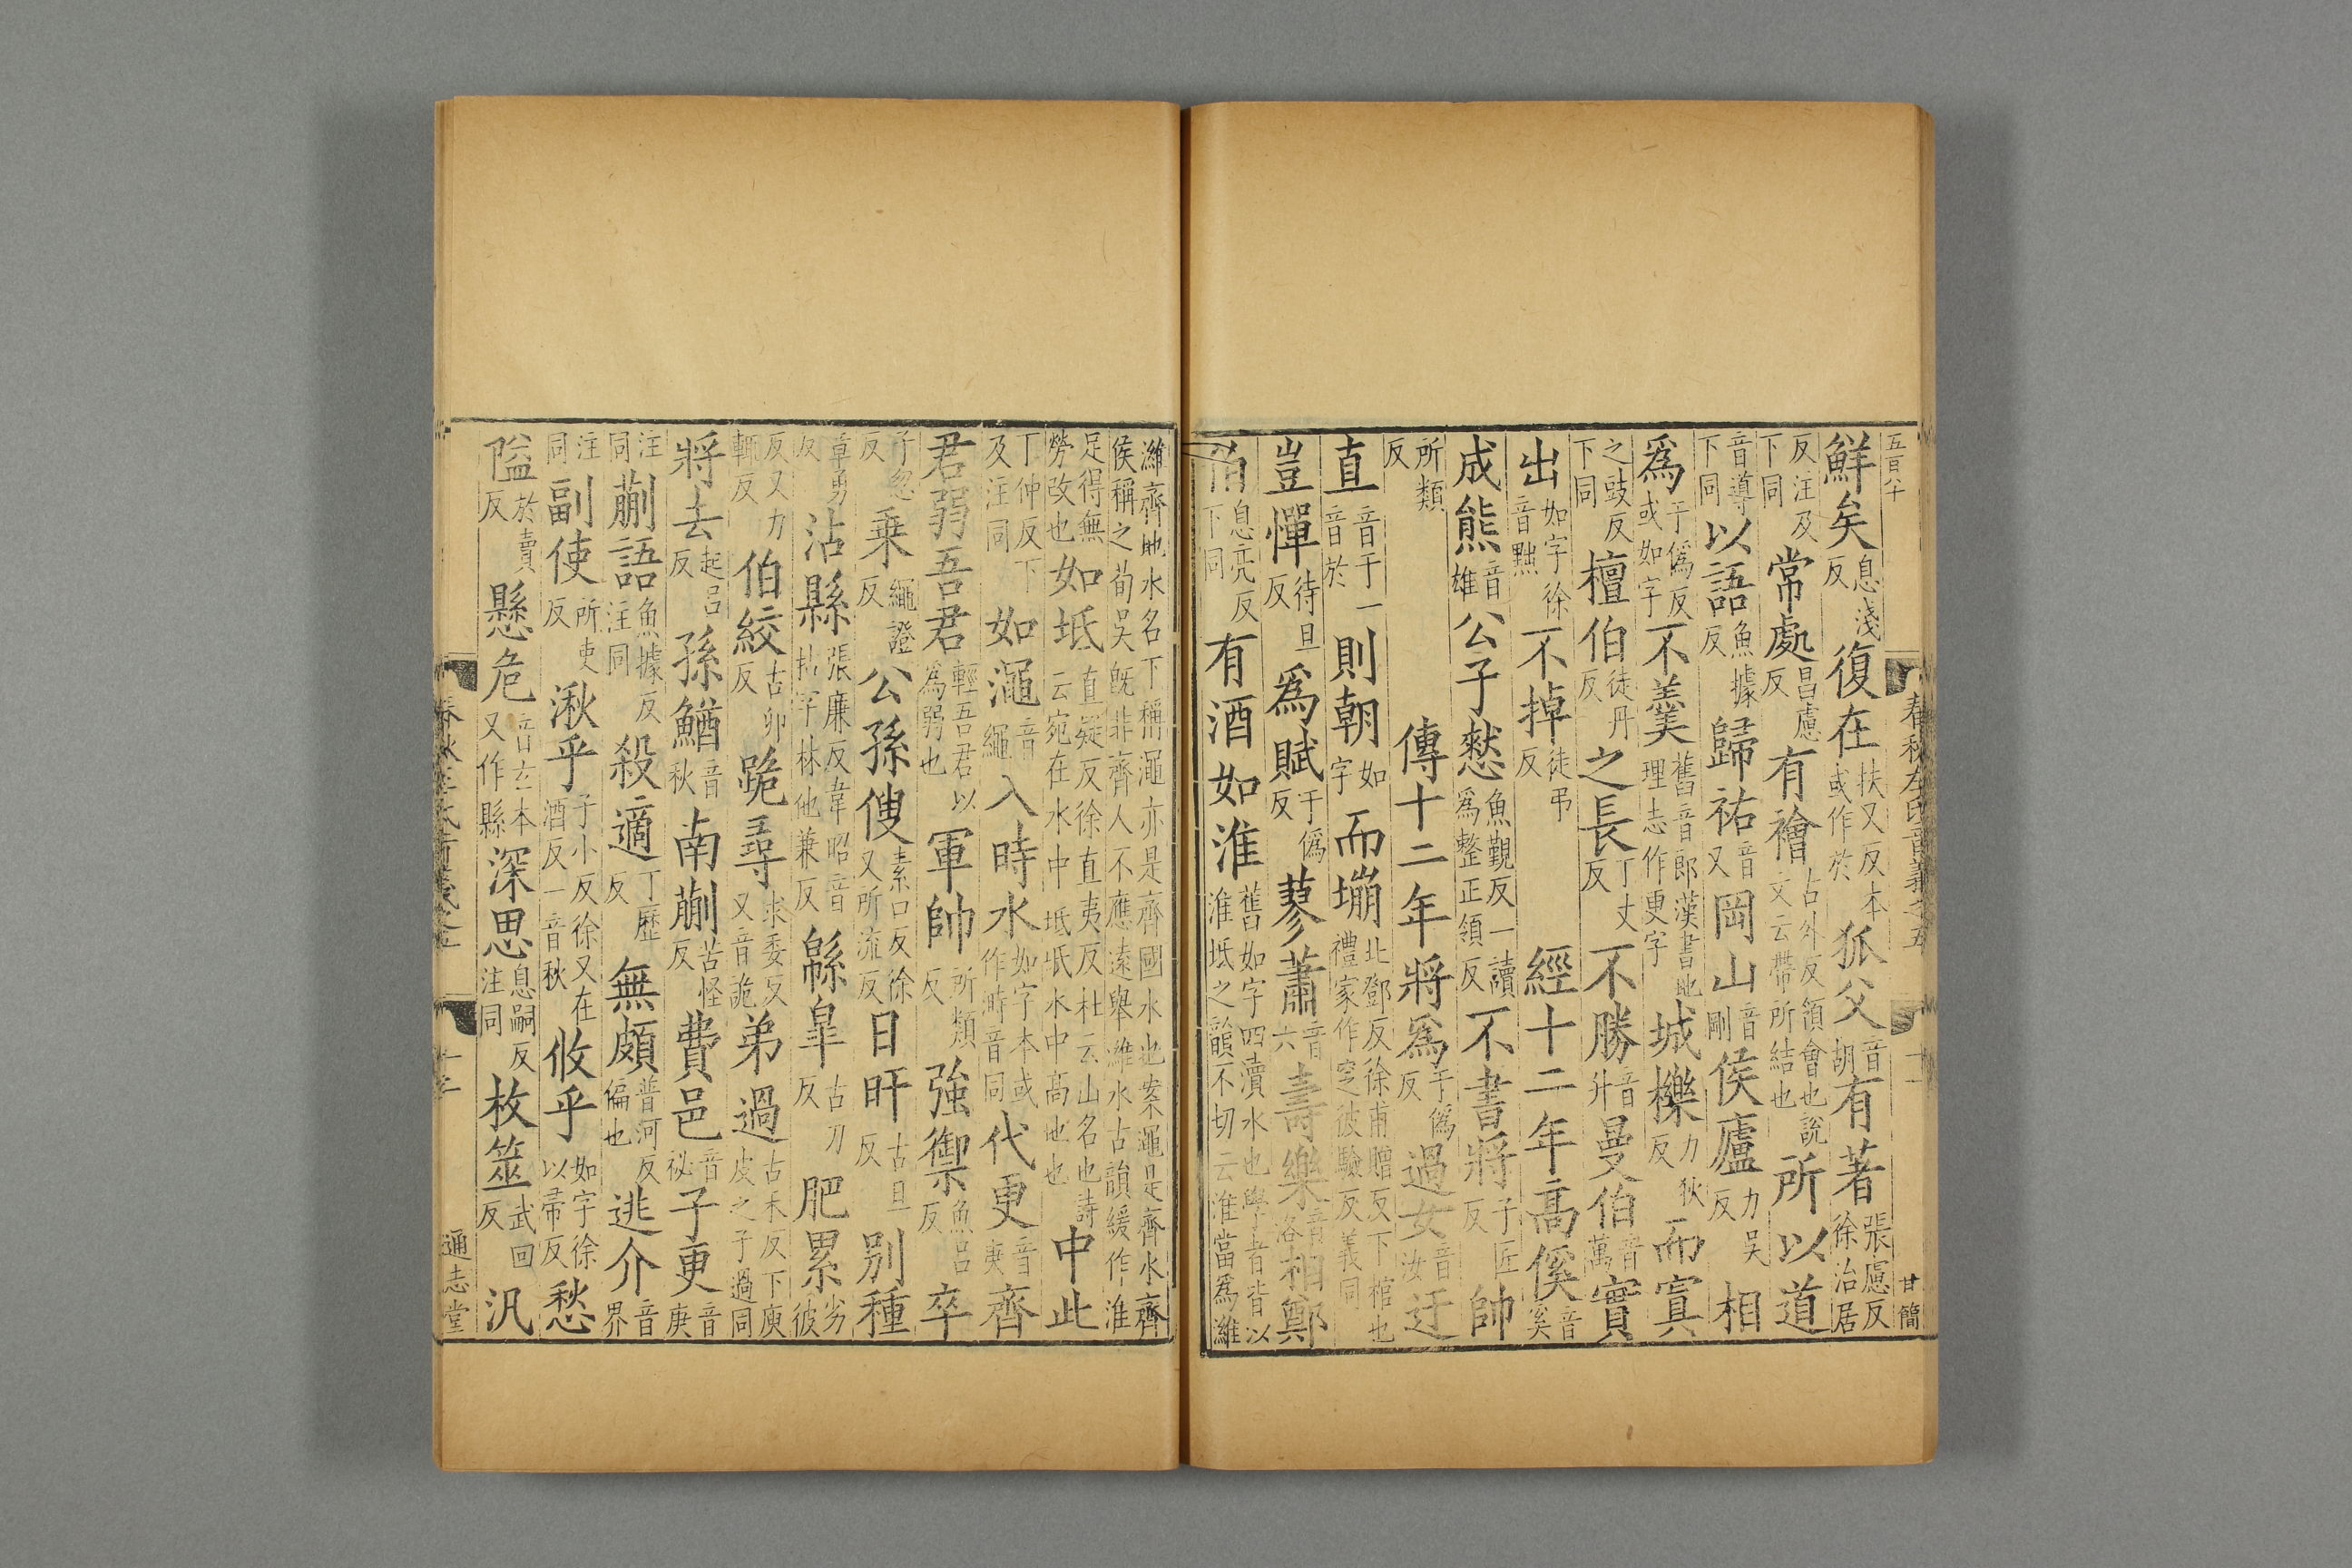 五百八十
春秋左氏音義之五
十一
甘簡
鮮矣息淺反復在扶又反本或作於狐父音胡有著張慮反徐治居
反注及下同常處昌慮反有襘古外反領會也說文云帶所結也所以道
音導下同以語魚據反歸祐音又岡山音剛侯廬力吳反相
爲于僞反或如字不羹舊音郎漢書地理志作更字城櫟力狄反而寘
之豉反下同檀伯徒丹反之長丁丈反不勝音升曼伯音萬實
出如字徐音黜不掉徒弔反經十二年高傒音奚
成熊音雄公子憖魚覲反一讀爲整正領反不書將子匠反帥
所類反傳十二年將爲于僞反過女音汝迂
直音于一音於則朝如字而塴北鄧反徐甫贈反下棺也禮家作窆彼驗反義同
豈憚待旦反爲賦于僞反蓼蕭音六壽樂音洛相鄭
伯息亮反下同有酒如淮舊如字四瀆水也學者皆以淮坻之韻不切云淮當爲濰
濰齊地水名下稱澠亦是齊國水也案澠是齊水齊侯稱之荀吳既非齊人不應遠舉濰水古韻緩作淮
足得無勞改也如坻直疑反徐直夷反杜云山名也詩云宛在水中坻坻水中高地也中此
丁仲反下及注同如澠音繩入時水如字本或作溡音同代更音庚齊
君弱吾君輕吾君以爲弱也軍帥所類反強禦魚呂反卒
子忽反乘繩證反公孫傁素口反徐又所流反日旰古旦反別種
章勇反沾縣張廉反韋昭音拈字林他兼反緜皐古刀反肥累劣彼
反又力輒反伯絞古卯反跪尋求委反又音詭弟過古禾反下庾皮之子過同
將去起呂反孫鰌音秋南蒯苦怪反費邑音祕子更音庚
注同蒯語魚據反注同殺適丁歷反無頗普河反偏也逃介音界
注同副使所吏反湫乎子小反徐又在酒反一音秋攸乎如字徐以帚反愁
隘於賣反懸危音玄本又作縣深思息嗣反注同枚筮武回反汎
通志堂